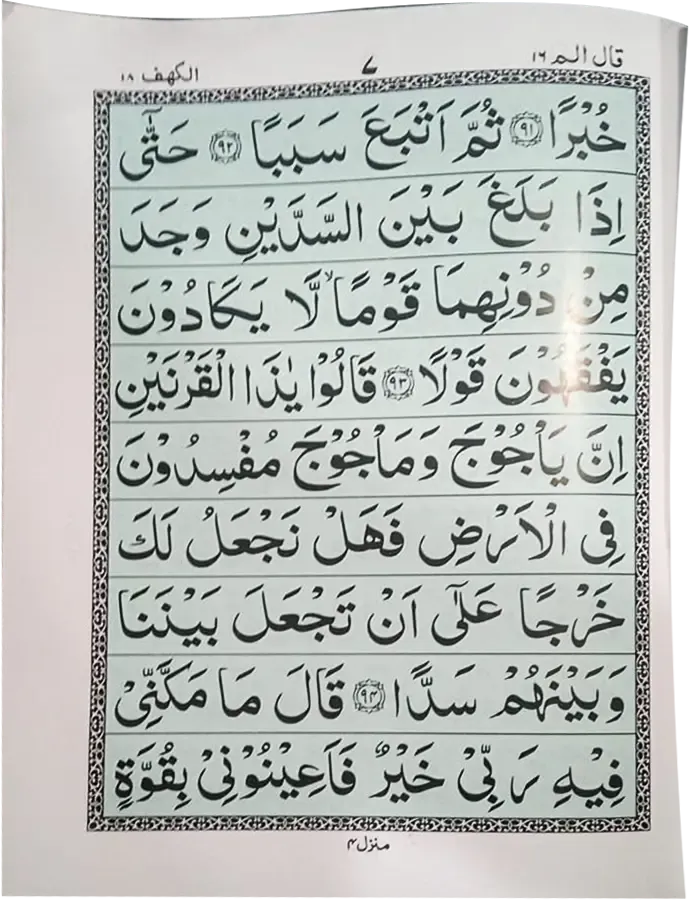 قال الم ١٦ ٧ الكهف ١٨
خُبْرًا ﴿۹۱﴾ ثُمَّ اَتْبَعَ سَبَبًا ﴿۹۲﴾ حَتّٰۤى
اِذَا بَلَغَ بَيْنَ السَّدَّيْنِ وَجَدَ
مِنْ دُوْنِهِمَا قَوْمًا ۙ لَّا يَكَادُوْنَ
يَفْقَهُوْنَ قَوْلًا ﴿۹۳﴾ قَالُوْا يٰذَا الْقَرْنَيْنِ
اِنَّ يَاْجُوْجَ وَمَاْجُوْجَ مُفْسِدُوْنَ
فِى الْاَرْضِ فَهَلْ نَجْعَلُ لَكَ
خَرْجًا عَلٰٓى اَنْ تَجْعَلَ بَيْنَنَا
وَبَيْنَهُمْ سَدًّا ﴿۹۴﴾ قَالَ مَا مَكَّنِّىْ
فِيْهِ رَبِّىْ خَيْرٌ فَاَعِيْنُوْنِىْ بِقُوَّةٍ
منزل ۴